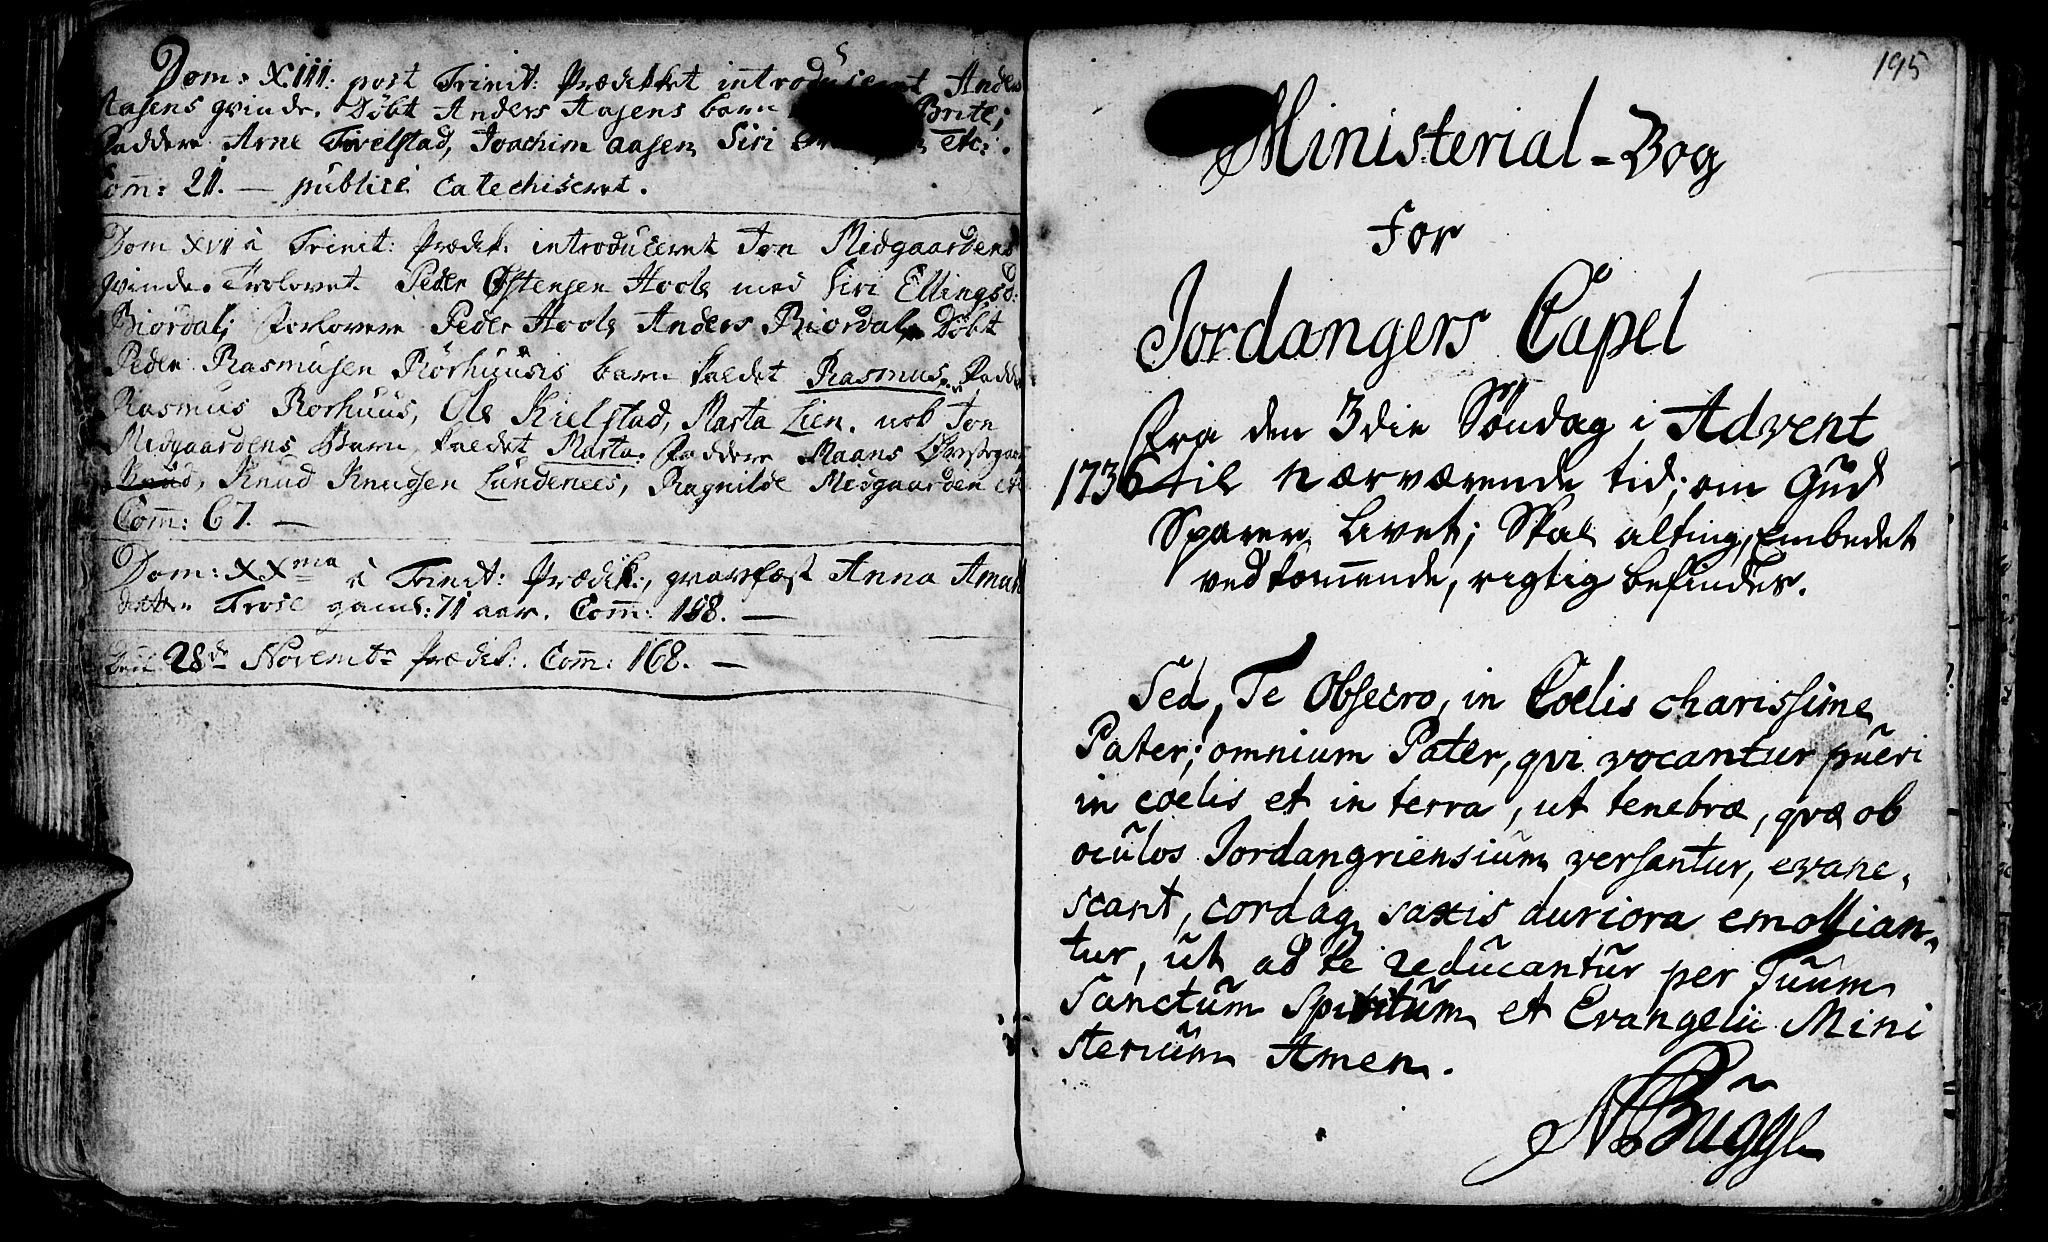 Dom: XIII: post Trinit: Prædikket introduceret Anders
Aasens qvinde. Døbt Anders Aasens barn Brite;
Faddere Arne Tivelstad, Joachim Aasen, Siri etc:.
Com̄: 21. — publicè Catechiseret.
Dom XVII à Trinit: Prædik: introduceret Jon Midgaardens
qvinde. Trolovet Peder Østensen Hoole med Siri Ellingsd:
Biordal; Forlovere Peder Hoole Anders Biordal, Døbt
Peder Rasmusen Rörhuusis barn kaldet Rasmus. Fadd
Rasmus Rorhuus, Ole Kielstad, Marta Lien. nok Jon
Midgaardens Barn kaldet Marta. Faddere Maans Øvstegaar
Knud, Knud Knudsen Lundenees, Ragnilde Midgaarden etc
Com̄: 67. —
Dom: XXma à Trinit: Prædik:, gravfæst Anna Amund
datter Trose gamel: 71 aar. Com̄: 188. —
28de Novembr Prædik:. Com̄: 168. —
195
Ministerial-Bog
For
Jordangers Capel
Fra den 3die Søndag i Advent
1736 til nærværende tid; om Gud
Sparer Livet; Skal alting, Embedet
vedkom̄ende, rigtig befindes.
Sed, Te Obsecro, in Coelis charissime
Pater; omnium Pater, qvi vocantur pueri
in coelis et in terra, ut tenebræ, qvæ ob
oculos Jordangriensium versantur, evane-
scant, cordaq saxis duriora emollian-
tur, ut ad te reducantur per Tuum
Sanctum Spiritum et Evangelii Mini
sterium Amen.
NBugge